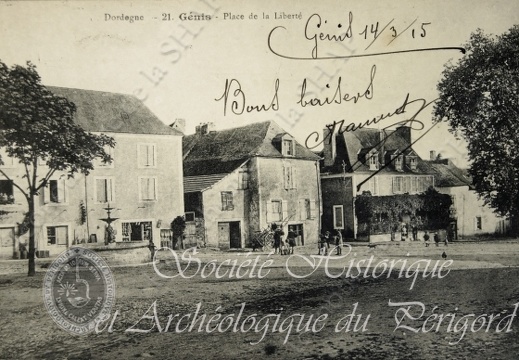 Dordogne - 21. Génis - Place de la Liberté
Génis 14/3/15
Bons baisers
Société Historique
et Archéologique du Périgord